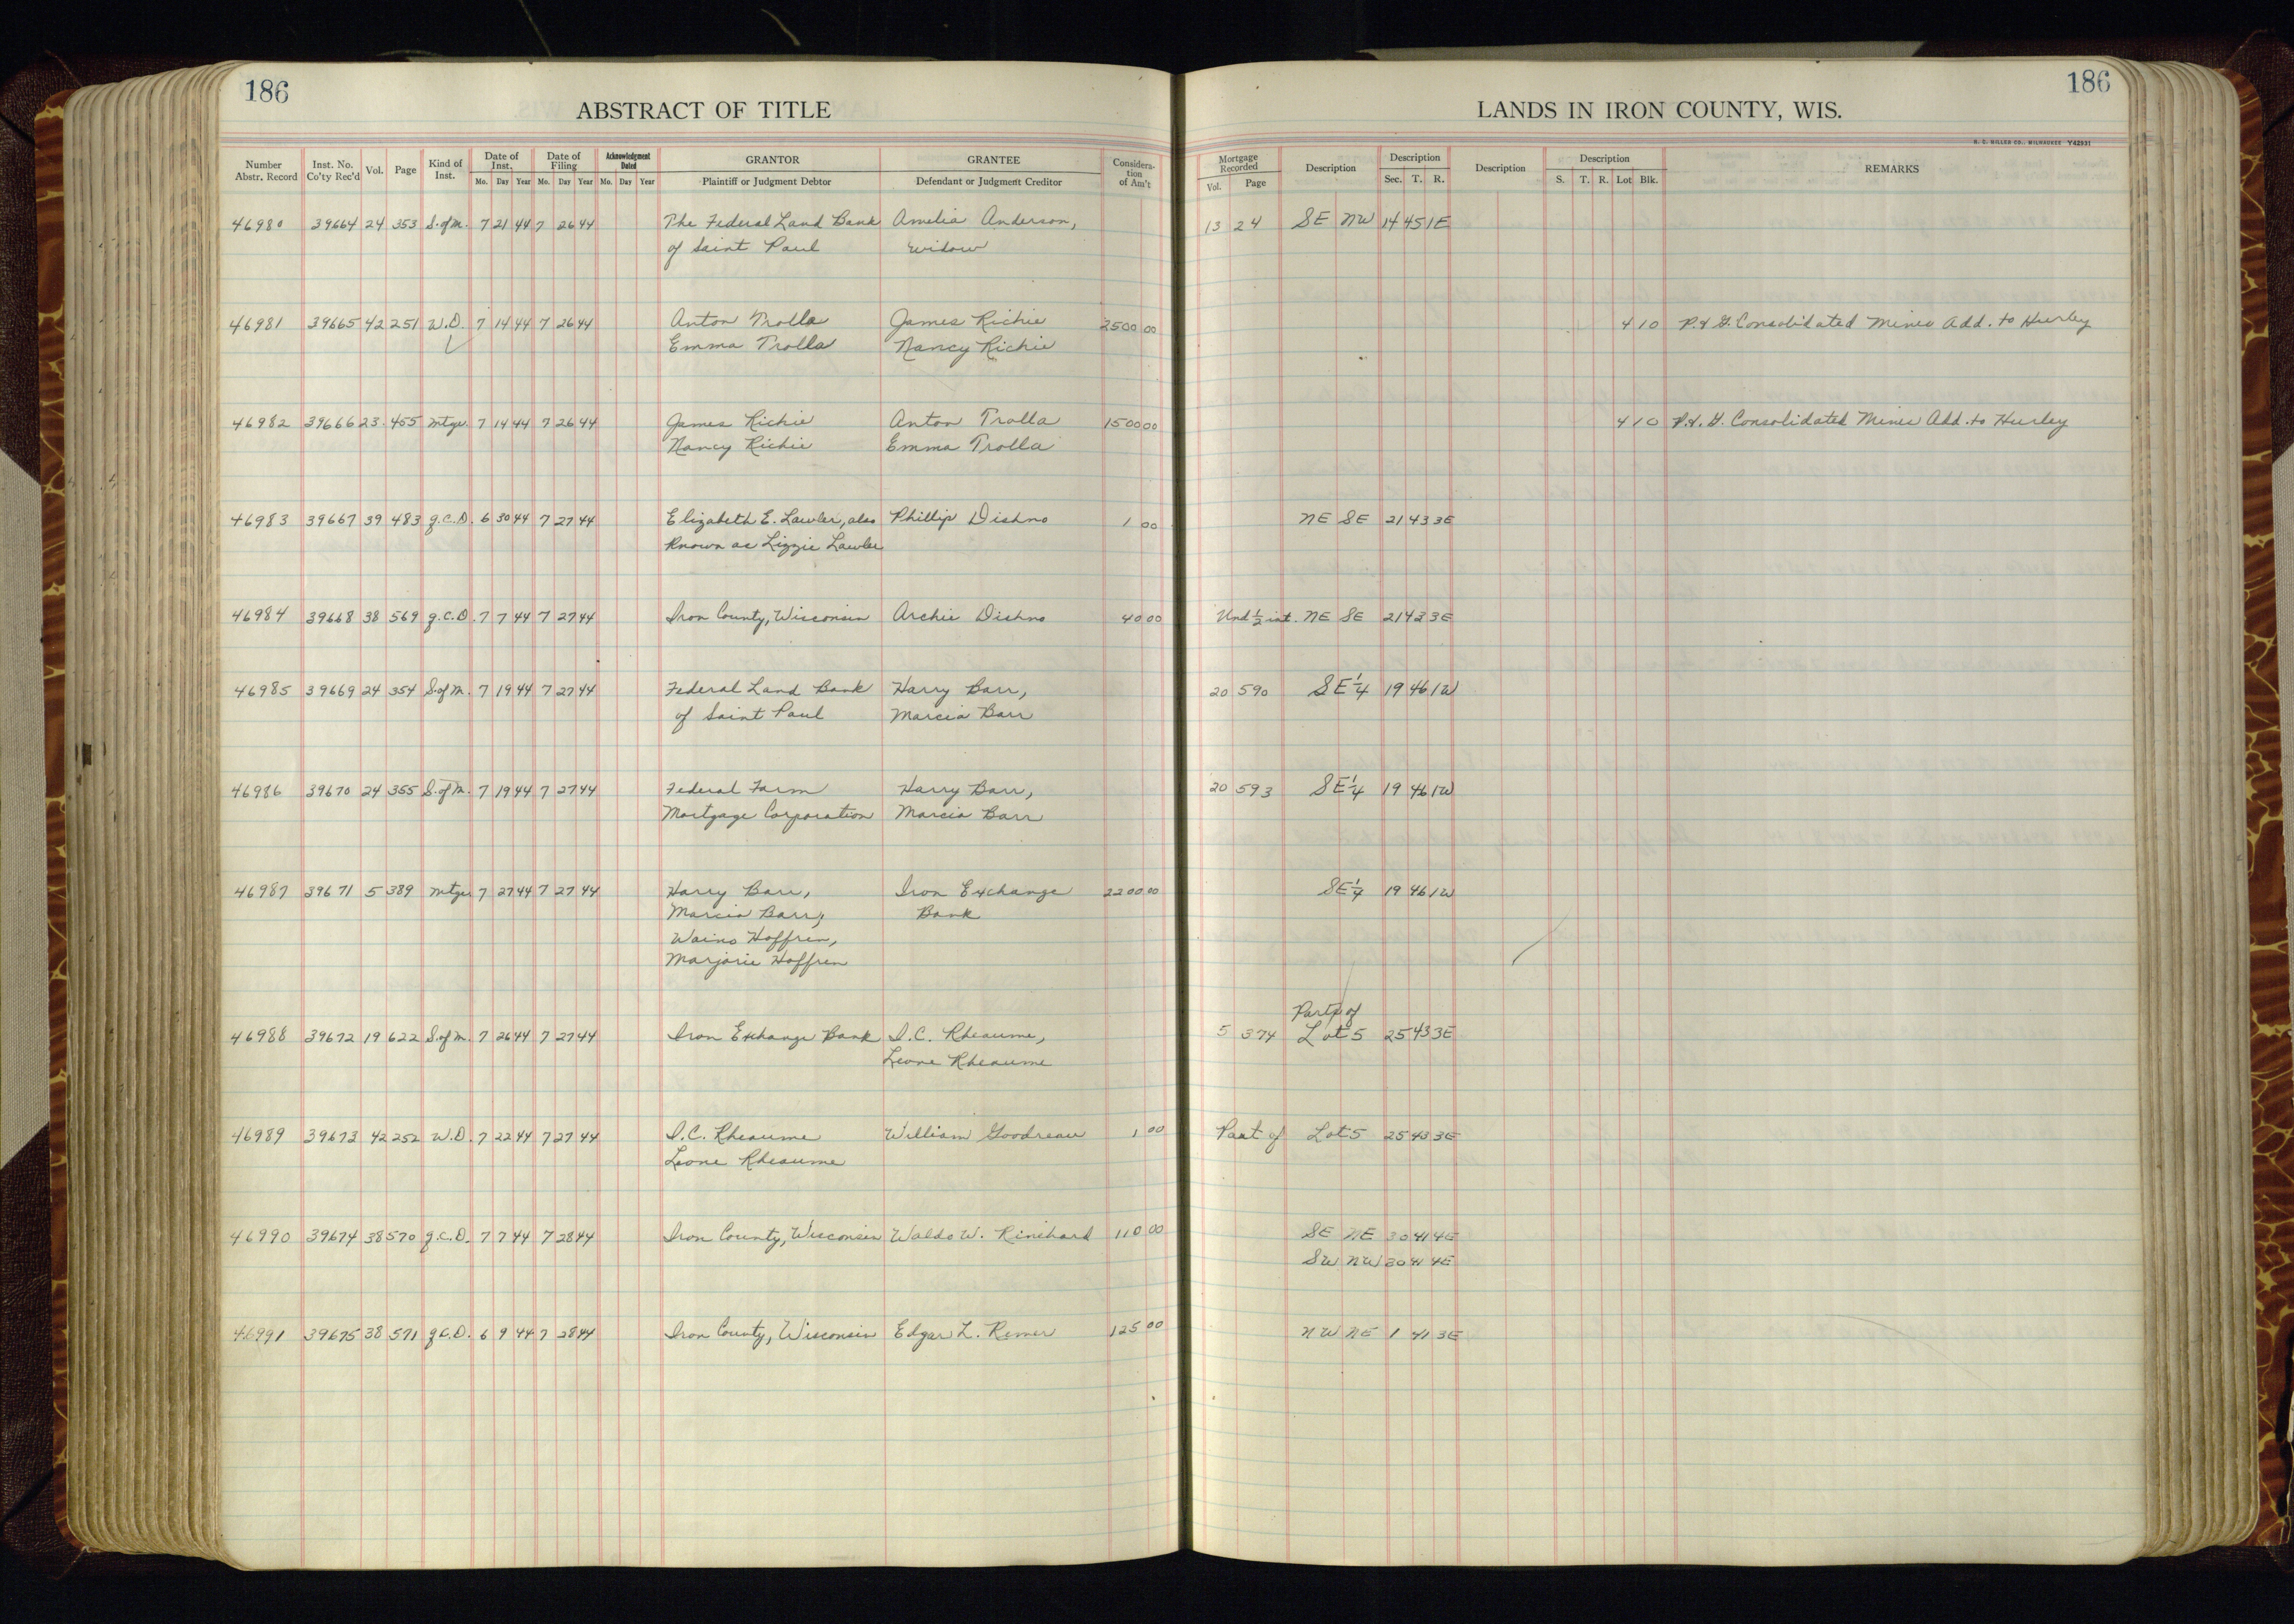 186
ABSTRACT OF TITLE
Number Abstr. Record Inst. No. Co'ty Rec'd Vol. Page Kind of Inst. Date of Inst. Mo. Day Year Date of Filing Mo. Day Year Acknowledgment Dated Mo. Day Year GRANTOR Plaintiff or Judgment Debtor GRANTEE Defendant or Judgment Creditor Consideration of Am't
186
LANDS IN IRON COUNTY, WIS.
H. C. MILLER CO., MILWAUKEE Y42931
Mortgage Recorded Vol. Page Description Description Sec. T. R. Description Description S. T. R. Lot Blk. REMARKS
46980 39664 24 353 S.ofM. 7 21 44 7 26 44 The Federal Land Bank Amelia Anderson, 13 24 SE NW 14 45 1E
of Saint Paul widow
46981 39665 42 251 W.D. 7 14 44 7 26 44 Anton Trolla James Richie 2500 00 4 10 P.& G. Consolidated Mines Add. to Hurley
Emma Trolla Nancy Richie
46982 39666 23 455 Mtge. 7 14 44 7 26 44 James Richie Anton Trolla 1500 00 4 10 P.&.G. Consolidated Mines Add. to Hurley
Nancy Richie Emma Trolla
46983 39667 39 483 q.C.D. 6 30 44 7 27 44 Elizabeth E. Lawler, also Phillip Dishno 1 00 NE SE 21 43 3E
known as Lizzie Lawler
46984 39668 38 569 q.C.D. 7 7 44 7 27 44 Iron County, Wisconsin Archie Dishno 40 00 Und ½ int. NE SE 21 43 3E
46985 39669 24 354 S.ofM. 7 19 44 7 27 44 Federal Land Bank Harry Barr, 20 590 SE¼ 19 46 1W
of Saint Paul Marcia Barr
46986 39670 24 355 S.ofM. 7 19 44 7 27 44 Federal Farm Harry Barr, 20 593 SE¼ 19 46 1W
Mortgage Corporation Marcia Barr
46987 39671 5 389 Mtge. 7 27 44 7 27 44 Harry Barr, Iron Exchange 2200 00 SE¼ 19 46 1W
Marcia Barr, Bank
Waino Hoffren,
Marjorie Hoffren
Parts of
46988 39672 19 622 S.ofM. 7 26 44 7 27 44 Iron Exchange Bank I.C. Rheaume, 5 374 Lot 5 25 43 3E
Leone Rheaume
46989 39673 42 252 W.D. 7 22 44 7 27 44 I.C. Rheaume William Goodreau 1 00 Part of Lot 5 25 43 3E
Leone Rheaume
46990 39674 38 570 q.C.D. 7 7 44 7 28 44 Iron County, Wisconsin Waldo W. Rinehard 110 00 SE NE 30 41 4E
SW NW 30 41 4E
46991 39675 38 571 q.C.D. 6 9 44 7 28 44 Iron County, Wisconsin Edgar L. Remer 125 00 NW NE 1 41 3E